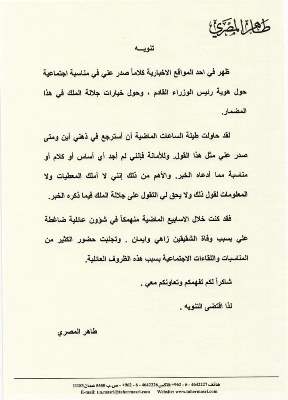 طاهر المصري
تنويـــه
ظهر في احد المواقع الاخبارية كلاماً صدر عني في مناسبة اجتماعية
حول هوية رئيس الوزراء القادم ، وحول خيارات جلالة الملك في هذا
المضمار.
لقد حاولت طيلة الساعات الماضية أن أسترجع في ذهني أين ومتى
صدر عني مثل هذا القول. وللأمانة فإنني لم أجد أي أساس أو كلام أو
مناسبة مما أدعاه الخبر. والأهم من ذلك إنني لا أملك المعطيات ولا
المعلومات لقول ذلك ولا يحق لي التقول على جلالة الملك فيما ذكره الخبر.
فقد كنت خلال الاسابيع الماضية منهمكاً في شؤون عائلية ضاغطة
علي بسبب وفاة الشقيقين زاهي وايمان . وتجنبت حضور الكثير من
المناسبات واللقاءات الاجتماعية بسبب هذه الظروف العائلية.
شاكراً لكم تفهمكم وتعاونكم معي .
لذا أقتضى التنويه .
طاهر المصري
هاتف: 4642227 - 6 - 962+ فاكس: 4642226 - 6 - 962+ ص.ب 5660 عمان
E-mail: t.n.masri@tahermasri.com Website: www.tahermasri.com